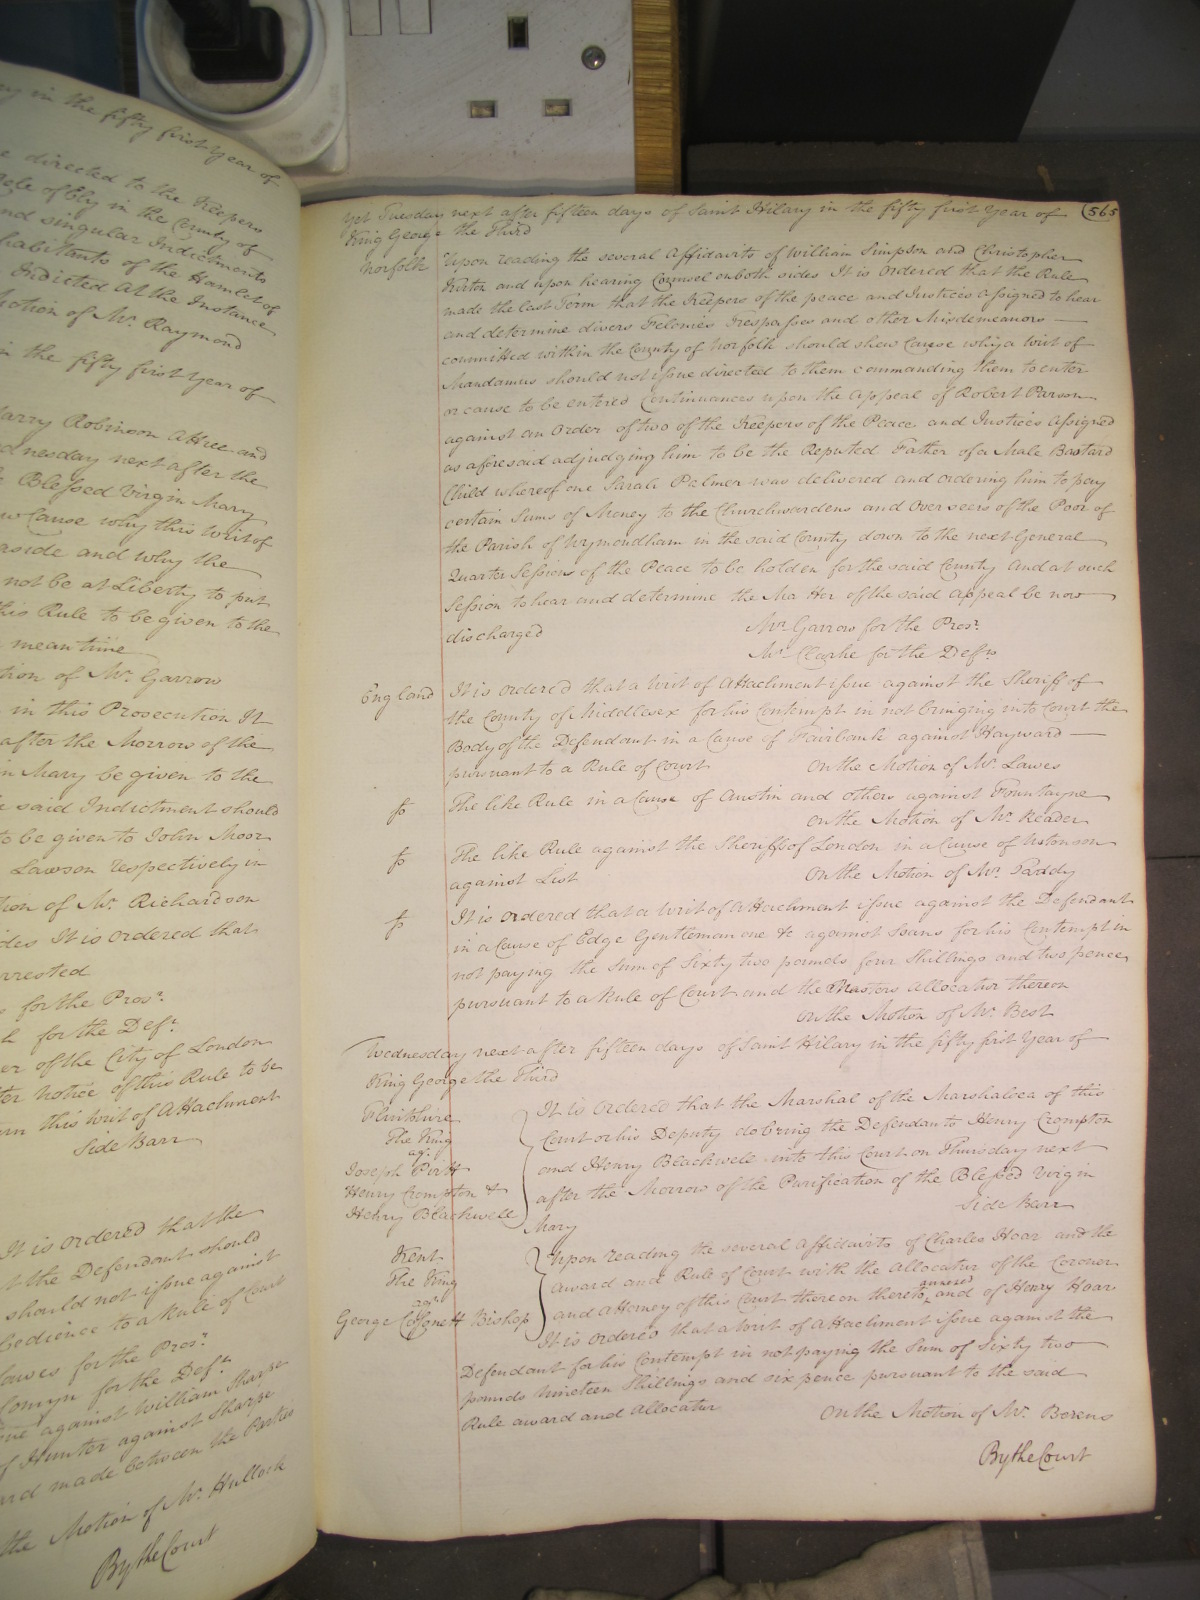 ny in the fifty first Year of
e directed to the Keepers
Isle of Ely in the County of
and singular Indictments
habitants of the Hamlet of
Indicted at the Instance
Motion of Mr. Raymond
in the fifty first Year of
Harry Robinson Attree and
dnesday next after the
e Blessed Virgin Mary
w Cause why this Writ of
aside and why the
not be at Liberty to put
this Rule to be given to the
mean time
tion of Mr. Garrow
in this Prosecution It
after the Morrow of the
in Mary be given to the
e said Indictment should
to be given to John Moor
Lawson respectively in
tion of Mr. Richardson
des It is Ordered that
rrested
for the Prosr.
for the Deft.
er of the City of London
ter notice of this Rule to be
urn this Writ of Attachment
Side Barr
It is Ordered that the
t the Defendant should
should not issue against
bedience to a Rule of Court
Lawes for the Prosr.
Comyn for the Deft.
sue against William Sharpe
of Hunter against Sharpe
rd made between the Parties
the Motion of Mr. Hullock
By the Court
Yet Tuesday next after fifteen days of Saint Hilary in the fifty first Year of 565
King George the Third
Norfolk Upon reading the several Affidavits of William Simpson and Christopher
Kirton and upon hearing Counsel on both sides It is Ordered that the Rule
made the last Term that the Keepers of the peace and Justices assigned to hear
and determine divers Felonies Trespasses and other Misdemeanors
committed within the County of Norfolk should shew Cause why a Writ of
Mandamus should not issue directed to them commanding them to enter
or cause to be entered Continuances upon the Appeal of Robert Parson
against an Order of two of the Keepers of the Peace and Justices Assigned
as aforesaid adjudging him to be the Reputed Father of a Male Bastard
Child whereof one Sarah Palmer was delivered and ordering him to pay
certain Sums of Money to the Churchwardens and Overseers of the Poor of
the Parish of Wymondham in the said County down to the next General
Quarter Sessions of the Peace to be holden for the said County and at such
Session to hear and determine the Matter of the said Appeal be now
discharged Mr. Garrow for the Prosr.
Mr. Clarke for the Defts.
England It is ordered that a Writ of Attachment issue against the Sheriff of
the County of Middlesex for his Contempt in not bringing into Court the
Body of the Defendant in a Cause of Fairbank against Hayward
pursuant to a Rule of Court On the Motion of Mr. Lawes
fs The like Rule in a Cause of Austin and others against Fountayne
On the Motion of Mr. Reader
fs The like Rule against the Sheriffs of London in a Cause of
against List On the Motion of Mr. Paddy
fs It is ordered that a Writ of Attachment issue against the Defendant
in a Cause of Edge Gentleman one &c against for his Contempt in
not paying the Sum of Sixty two pounds four Shillings and two pence
pursuant to a Rule of Court and the Masters Allocatur thereon
On the Motion of Mr. Best
Wednesday next after fifteen days of Saint Hilary in the fifty first Year of
King George the Third
Flintshire
The King
agt.
Joseph
Henry Crompton &
Henry Blackwell
It is Ordered that the Marshal of the Marshalsea of this
Court or his Deputy do bring the Defendants Henry Crompton
and Henry Blackwell into this Court on Thursday next
after the Morrow of the Purification of the Blessed Virgin
Mary Side Barr
Kent
The King
agt.
George Bishop
Upon reading the several Affidavits of Charles Hoar and the
award and Rule of Court with the allocatur of the Coroner
and Attorney of this Court thereon thereto annexed and of Henry Hoar
It is Ordered that a Writ of Attachment issue against the
Defendant for his Contempt in not paying the Sum of Sixty two
pounds Nineteen Shillings and six pence pursuant to the said
Rule award and Allocatur On the Motion of Mr. Berens
By the Court